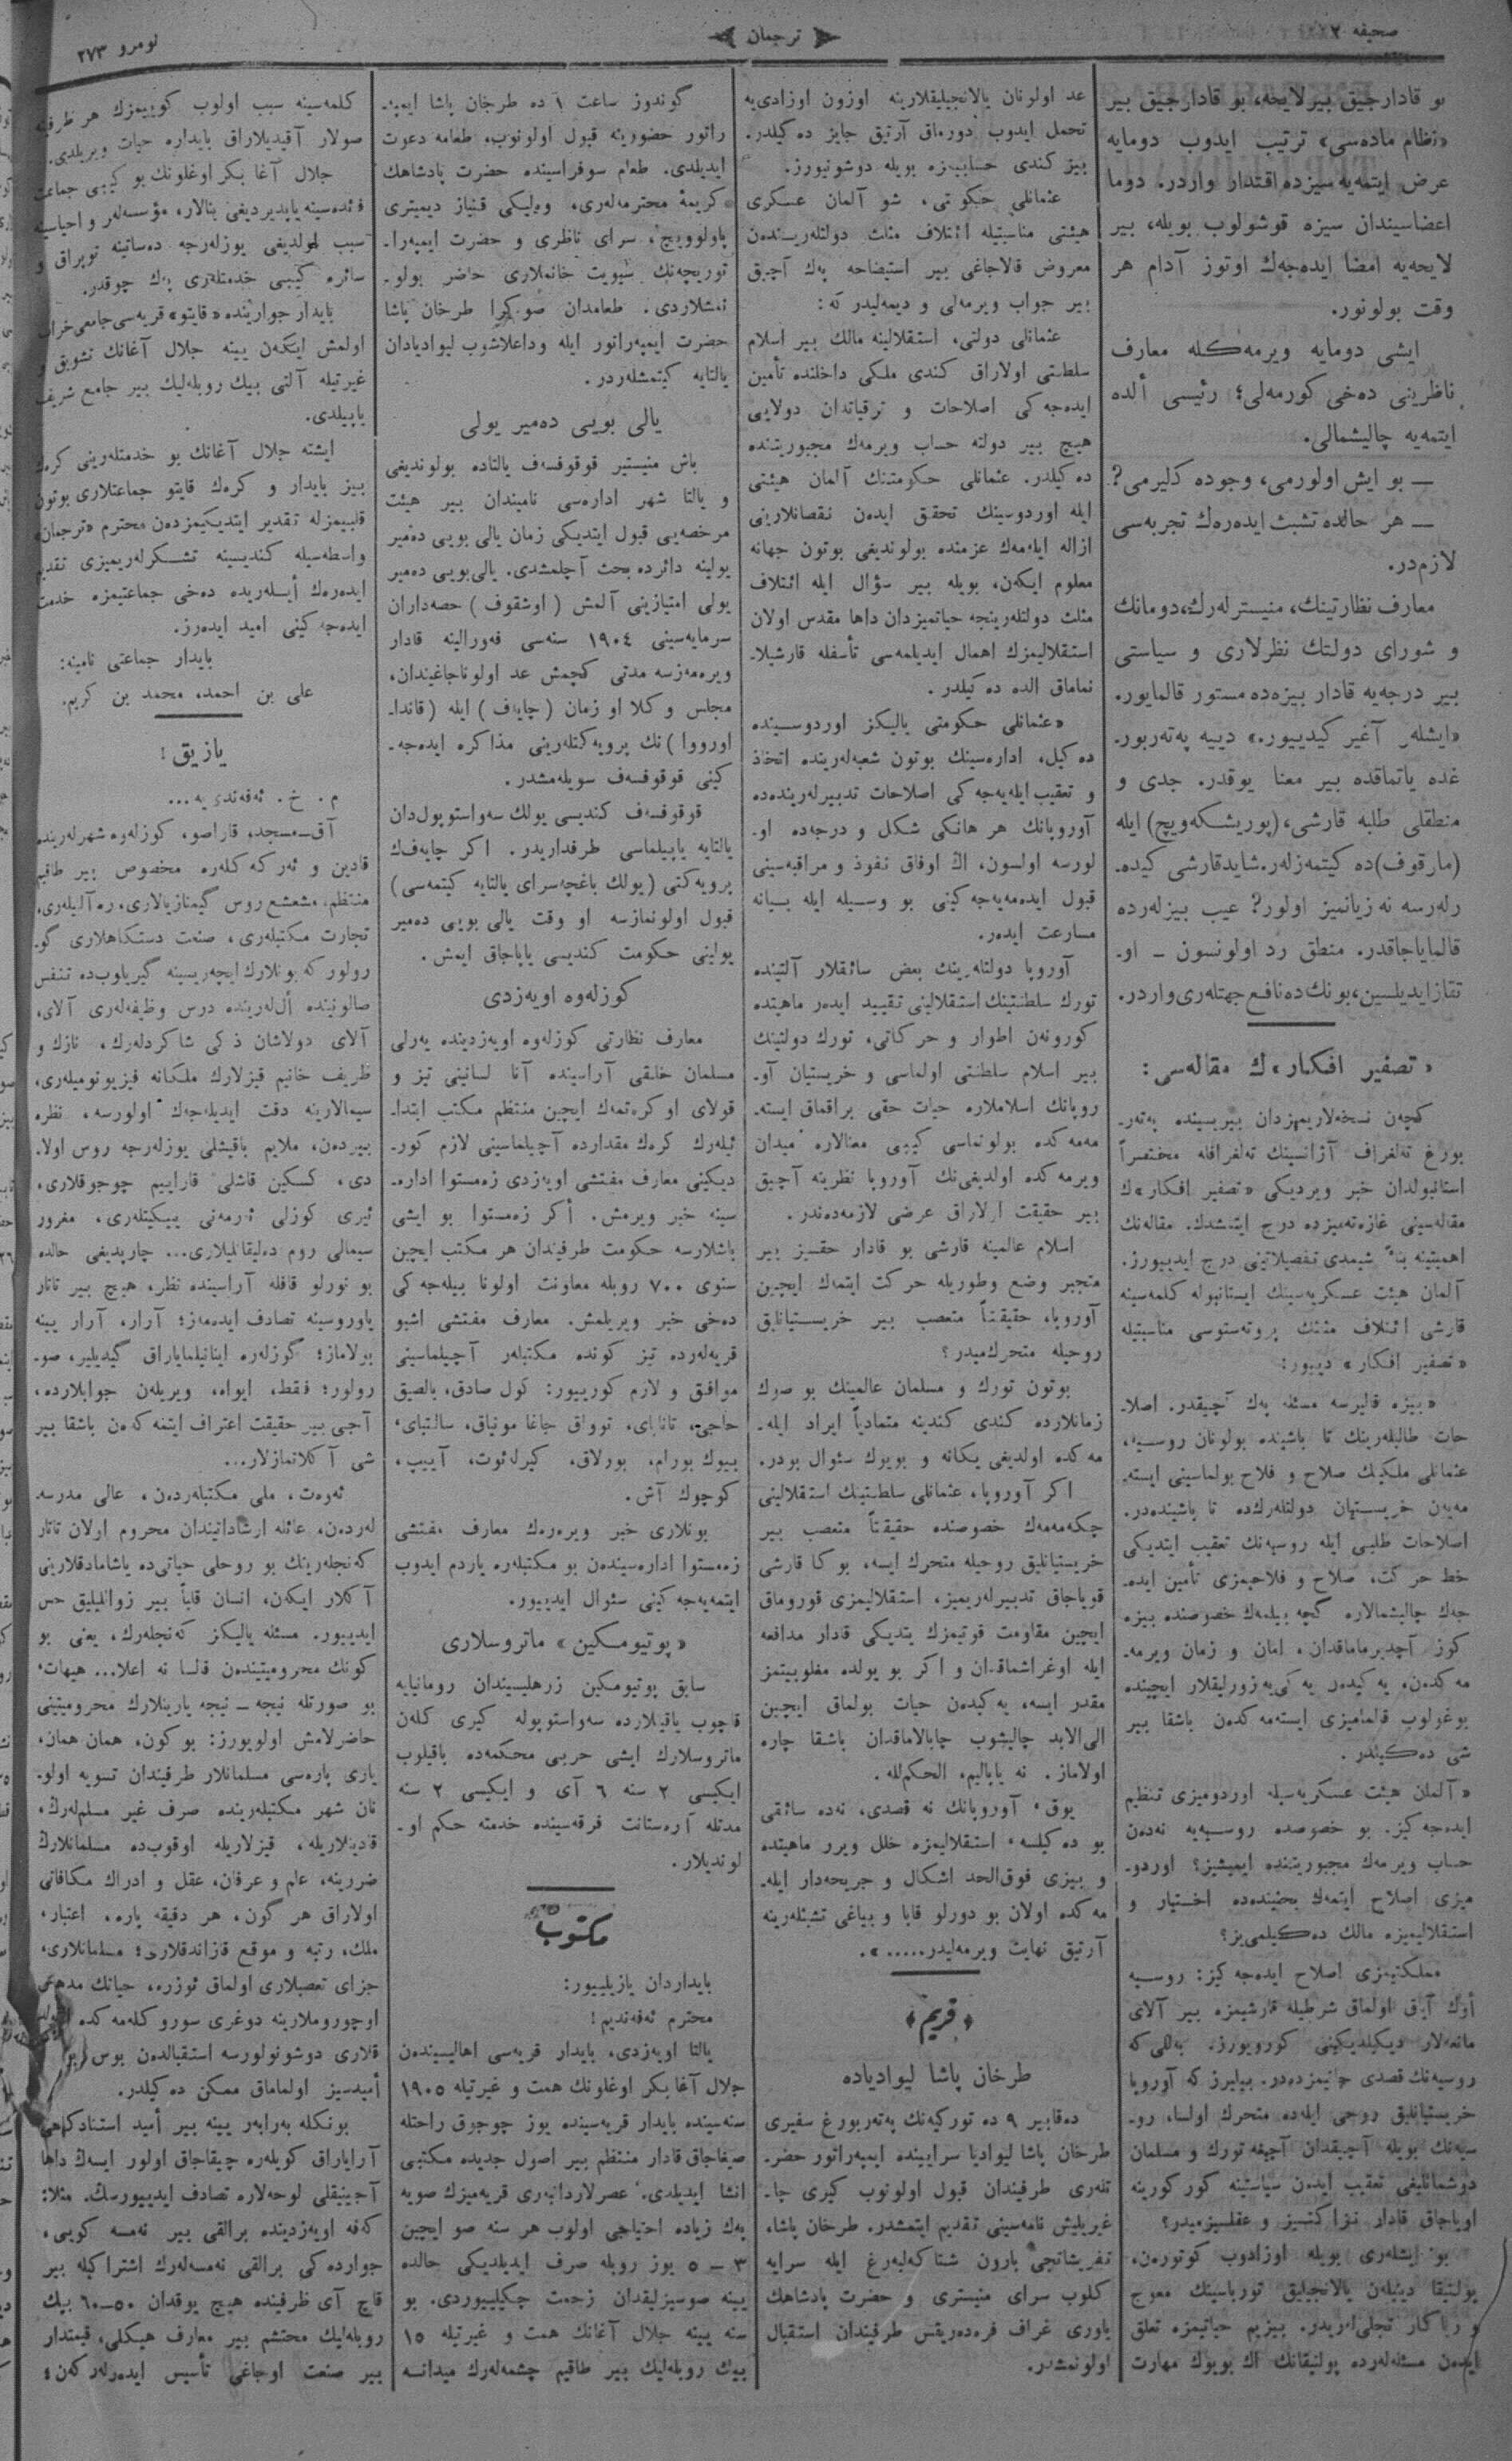 صحیفه ٢
ترجمان
نومرو ٢٧٣
بو قادارجیق بیرلایحه، بو قادارجیق بیر
«نظام ماده‌سی» ترتیب ایدوب دومایه
عرض ایتمه‌یه سیزده اقتدار واردر. دوما
اعضاسیندان سیزه قوشولوب بویله، بیر
لایحه‌یه امضا ایده‌جه‌ك اوتوز آدام هر
وقت بولونور.
ایشی دومایه ویرمه‌کله معارف
ناظرینی ده‌خی کورمه‌لی؛ رئیسی ألده
ایتمه‌یه چالیشمالی.
— بو ایش اولورمی، وجوده کلیرمی؟
— هر حالده تشبث ایده‌ره‌ك تجربه‌سی
لازمدر.
معارف نظارتینك، منیسترلەرك، دومانك
و شورای دولتك نظرلاری و سیاستی
بیر درجه‌یه قادار بیزه‌ده مستور قالمایور.
«ایشلەر آغیر کیدییور.» دییه په‌تەربور-
غده یاتماقده بیر معنا یوقدر. جدی و
منطقلی طلبه قارشی، (پوریشکه‌ویچ) ایله
(مارقوف) ده کیتمه‌زلەر. شاید قارشی کیده-
رلەرسه نه زیانمیز اولور؟ عیب بیزلەرده
قالمایاجاقدر. منطق رد اولونسون - او-
تقاز ایدیلسین، بونك ده نافع جهتلەری واردر.
«تصفیر افکار» ك مقاله‌سی:
کچه‌ن نسخه‌لاریمزدان بیریسینده په‌تەر-
بورغ تەلغراف آژانسینك تەلغرافله مختصراً
استانبولدان خبر ویردیکی «تصفیر افکار» ك
مقاله‌سینی غازه‌ته‌میزده درج ایتمشدك. مقاله‌نك
اهمیتینه بناءً شیمدی تفصیلاتینی درج ایدییورز.
آلمان هیئت عسکریه‌سینك ایستانبوله کلمه‌سینه
قارشی ائتلاف مثلثك پروته‌ستوسی مناسبتیله
«تصفیر افکار» دییور:
«بیزه قالیرسه مسئله په‌ك آچیقدر. اصلا-
حات طالبلەرینك تا باشینده بولونان روسیه،
عثمانلی ملکینك صلاح و فلاح بولماسینی ایسته-
مه‌یه‌ن خریستیان دولتلەرك‌ده تا باشینده‌در.
اصلاحات طلبی ایله روسیه‌نك تعقیب ایتدیکی
خط حرکت، صلاح و فلاحیمزی تأمین ایده-
جه‌ك چالیشمالاره کچه بیلمه‌ك خصوصنده بیزه
کوز آچدیرماماقدان، امان و زمان ویرمه-
مه‌کده‌ن، یه‌کیده‌ن یه‌کی‌یه زورلیقلار ایچینده
بوغولوب قالمامیزی ایسته‌مه‌کده‌ن باشقا بیر
شی ده‌کیلدر.
«آلمان هیئت عسکریه‌سیله اوردومیزی تنظیم
ایده‌جه‌کیز. بو خصوصده روسیه‌یه نه‌ده‌ن
حساب ویرمه‌ك مجبوریتنده ایمیشیز؟ اوردو-
میزی اصلاح ایتمه‌ك بحثینده‌ده اختیار و
استقلالیمیزه مالك ده‌کیلمی‌یز؟
مملکتیمزی اصلاح ایده‌جه‌کیز: روسیه
أوك آیق اولماق شرطیله قارشیمزه بیر آلای
مانعه‌لار دیکیلدیکینی کورویورز. به‌للی‌که
روسیه‌نك قصدی جانیمزه‌ده‌در. بیلیرز که آوروپا
خریستیانلیق روحی ایله‌ده متحرك اولسا، رو-
سیه‌نك بویله آچیقدان آچیغه تورك و مسلمان
دوشمانلیغی تعقیب ایده‌ن سیاستینه کور کورینه
اویاجاق قادار نزاکتسیز و عقلسیزمیدر؟
بو ایشلەری بویله اوزادوب کوتوره‌ن،
پولتیقا دینیله‌ن یالانجیلیق تورباسینك معوج
و ریاکار تجلی‌لەریدر. بیزیم حیاتیمزه تعلق
ایده‌ن مسئله‌لەرده پولتیقانك اك بویوك مهارت
عد اولونان یالانجیلیقلارینه اوزون اوزادی‌یه
تحمل ایدوب دورماق آرتیق جایز ده‌کیلدر.
بیز کندی حسابیمزه بویله دوشونیورز.
عثمانلی حکومتی، شو آلمان عسکری
هیئتی مناسبتیله ائتلاف مثلث دولتلەریندەن
معروض قالاجاغی بیر استیضاحه په‌ك آچیق
بیر جواب ویرمه‌لی و دیمه‌لیدر که:
عثمانلی دولتی، استقلالینه مالك بیر اسلام
سلطنتی اولاراق کندی ملکی داخلنده تأمین
ایده‌جه‌کی اصلاحات و ترقیاتدان دولایی
هیچ بیر دولته حساب ویرمه‌ك مجبوریتنده
ده‌کیلدر. عثمانلی حکومتنك آلمان هیئتی
ایله اوردوسینك تحقق ایده‌ن نقصانلارینی
ازاله ایله‌مه‌ك عزمنده بولوندیغی بوتون جهانه
معلوم ایکه‌ن، بویله بیر سؤال ایله ائتلاف
مثلث دولتلەرینجه حیاتمیزدان داها مقدس اولان
استقلالیمزك اهمال ایدیلمه‌سی تأسفله قارشیلا-
نماماق الده ده‌کیلدر.
«عثمانلی حکومتی یالیکز اوردوسینده
ده‌کیل، اداره‌سینك بوتون شعبه‌لەرینده اتخاذ
و تعقیب ایله‌یه‌جه‌کی اصلاحات تدبیرلەرینده‌ده
آوروپانك هر هانکی شکل و درجه‌ده او-
لورسه اولسون، اك اوفاق نفوذ و مراقبه‌سینی
قبول ایده‌مه‌یه‌جه‌کینی بو وسیله ایله بیانه
مسارعت ایدەر.
آوروپا دولتلەرینك بعض سائقلار آلتینده
تورك سلطنتینك استقلالینی تقیید ایدەر ماهیتده
کورونه‌ن اطوار و حرکاتی، تورك دولتینك
بیر اسلام سلطنتی اولماسی و خریستیان آو-
روپانك اسلاملاره حیات حقی براقماق ایسته-
مه‌مه‌کده بولونماسی کیبی معنالاره میدان
ویرمه‌کده اولدیغی‌نك آوروپا نظرینه آچیق
بیر حقیقت اولاراق عرضی لازمه‌ده‌ندر.
اسلام عالمینه قارشی بو قادار حقسیز بیر
متجبر وضع وطوریله حرکت ایتمه‌ك ایچین
آوروپا، حقیقتاً متعصب بیر خریستیانلیق
روحیله متحرك‌میدر؟
بوتون تورك و مسلمان عالمینك بو صوك
زمانلارده کندی کندینه متمادیاً ایراد ایله-
مه‌کده اولدیغی یکانه و بویوك سئوال بودر.
اکر آوروپا، عثمانلی سلطنتینك استقلالینی
چکه‌مه‌مه‌ك خصوصنده حقیقتاً متعصب بیر
خریستیانلیق روحیله متحرك ایسه، بوکا قارشی
قویاجاق تدبیرلەریمیز، استقلالیمزی قوروماق
ایچین مقاومت قوتیمزك یتدیکی قادار مدافعه
ایله اوغراشماقدان و اکر بو یولده مغلوبیتمز
مقدر ایسه، یه‌کیده‌ن حیات بولماق ایچین
الی‌الابد چالیشوب چابالاماقدان باشقا چاره
اولاماز. نه یاپالیم، الحکم‌لله.
یوق، آوروپانك نه قصدی، نه‌ده سائقی
بو ده‌کیلسه، استقلالیمزه خلل ویرر ماهیتده
و بیزی فوق‌الحد اشکال و جریحه‌دار ایله-
مه‌کده اولان بو دورلو قابا و بیاغی تشبثلەرینه
آرتیق نهایت ویرمه‌لیدر.....».
﴿قریم﴾
طرخان پاشا لیوادیاده
ده‌قابیر ٩ ده تورکیه‌نك په‌تەربورغ سفیری
طرخان پاشا لیوادیا سرایینده ایمپەراتور حضر-
تلەری طرفیندان قبول اولونوب کیری چا-
غیریلیش نامه‌سینی تقدیم ایتمشدر. طرخان پاشا،
تفریشاتجی بارون شتاکه‌لبەرغ ایله سرایه
کلوب سرای منیستری و حضرت پادشاهك
یاوری غراف فره‌ده‌ریقس طرفیندان استقبال
اولونمشدر.
گوندوز ساعت ١ ده طرخان پاشا ایمپه-
راتور حضورینه قبول اولونوب، طعامه دعوت
ایدیلدی. طعام سوفراسینده حضرت پادشاهك
کریمهٔ محترمه‌لەری، وەلیکی قنیاز دیمیتری
پاولوویچ، سرای ناظری و حضرت ایمپەرا-
توریچه‌نك سویت خانملاری حاضر بولو-
نمشلاردی. طعامدان صوکرا طرخان پاشا
حضرت ایمپەراتور ایله وداعلاشوب لیوادیادان
یالتایه کیتمشلەردر.
یالی بویی ده‌میر یولی
باش منیستیر قوقوفسەف یالتاده بولوندیغی
و یالتا شهر اداره‌سی نامیندان بیر هیئت
مرخصه‌یی قبول ایتدیکی زمان یالی بویی ده‌میر
یولینه دائرده بحث آچلمشدی. یالی‌بویی ده‌میر
یولی امتیازینی آلمش (اوشقوف) حصه‌داران
سرمایه‌سینی ١٩٠٤ سنه‌سی فه‌ورالینه قادار
ویره‌مه‌زسه مدتی کچمش عد اولوناجاغیندان،
مجلس وکلا او زمان (چایەف) ایله (قاندا-
اورووا) نك پرویه‌کتلەرینی مذاکره ایده‌جه-
کینی قوقوفسەف سویله‌مشدر.
قوقوفسەف کندیسی یولك سەواستوپول‌دان
یالتایه یاپیلماسی طرفداریدر. اکر چایەف‌ك
پرویه‌کتی (یولك باغچه‌سرای یالتایه کیتمه‌سی)
قبول اولونمازسه او وقت یالی بویی ده‌میر
یولینی حکومت کندیسی یاپاجاق ایمش.
کوزله‌وه اویەزدی
معارف نظارتی کوزله‌وه اویەزدینده یەرلی
مسلمان خلقی آراسینده آنا لسانینی تیز و
قولای اوکره‌تمه‌ك ایچین منتظم مکتب ابتدا-
ئیلەرك کره‌ك مقدارده آچیلماسینی لازم کور-
دیکینی معارف مفتشی اویەزدی زه‌مستوا اداره-
سینه خبر ویرمش. أکر زه‌مستوا بو ایشی
باشلارسه حکومت طرفیندان هر مکتب ایچین
سنوی ٧٠٠ روبله معاونت اولونا بیله‌جه‌کی
ده‌خی خبر ویریلمش. معارف مفتشی اشبو
قریه‌لەرده تیز کونده مکتبلەر آچیلماسینی
موافق و لازم کورییور: کول صادق، بالصیق
حاجی، تانابای، توواق جاغا مونیاق، سالتبای،
بیوك بورام، بورلاق، کیرلەئوت، آییپ،
کوچوك آش.
بونلاری خبر ویره‌ره‌ك معارف مفتشی
زه‌مستوا اداره‌سیندەن بو مکتبلەره یاردم ایدوب
ایتمه‌یه‌جه‌کینی سئوال ایدییور.
«پوتیومکین» ماتروسلاری
سابق پوتیومکین زرهلیسیندان رومانیایه
قاچوب یاقیلارده سه‌واستوپوله کیری کلەن
ماتروسلارك ایشی حربی محکمه‌ده باقیلوب
ایکیسی ٢ سنه ٦ آی و ایکیسی ٢ سنه
مدتله آره‌ستانت فرقه‌سینده خدمته حکم او-
لوندیلار.
مکتوب
بایداردان یازیلییور:
محترم ئه‌فه‌ندیم!
یالتا اویەزدی، بایدار قریه‌سی اهالیسیندەن
جلال آغا بکر اوغلونك همت و غیرتیله ١٩٠٥
سنه‌سینده بایدار قریه‌سینده یوز چوجوق راحتله
صیغاجاق قادار منتظم بیر اصول جدیده مکتبی
انشا ایدیلدی. عصرلاردانبەری قریه‌میزك صویه
په‌ك زیاده احتیاجی اولوب هر سنه صو ایچین
٣ - ٥ یوز روبله صرف ایدیلدیکی حالده
یینه صوسیزلیقدان زحمت چکیلییوردی. بو
سنه یینه جلال آغانك همت و غیرتیله ١٥
بیك روبله‌لیك بیر طاقیم چشمه‌لەرك میدانه
کلمه‌سینه سبب اولوب کوییمزك هر طرفینه
صولار آقیدیلاراق بایداره حیات ویریلدی.
جلال آغا بکر اوغلونك بو کیبی جماعت
فائده‌سینه یاپدیردیغی بنالار، مؤسسه‌لەر و احیاسینه
سبب اولدیغی یوزلەرجه ده‌ساتینه توپراق و
سائره کیبی خدمتلەری په‌ك چوقدر.
بایدار جوارینده «قایتو» قریه‌سی جامعی خراب
اولمش ایکه‌ن یینه جلال آغانك تشویق و
غیرتیله آلتی بیك روبله‌لیك بیر جامع شریف
یاپیلدی.
ایشته جلال آغانك بو خدمتلەرینی کره‌ك
بیز بایدار و کره‌ك قایتو جماعتلاری بوتون
قلبیمزله تقدیر ایتدیکیمزده‌ن محترم «ترجمان»
واسطه‌سیله کندیسینه تشکرلەریمیزی تقدیم
ایده‌ره‌ك أیسلەریده ده‌خی جماعتیمزه خدمت
ایده‌جه‌کینی امید ایدەرز.
بایدار جماعتی نامینه:
علی بن احمد، محمد بن کریم.
یازیق!
م. خ. ئه‌فه‌ندی‌یه...
آق-مسجد، قاراصو، کوزله‌وه شهرلەرینده
قادین و ئەرکه‌کلەره مخصوص بیر طاقیم
منتظم، مشعشع روس گیمنازیالاری، ره‌آلیلەری،
تجارت مکتبلەری، صنعت دستکاهلاری گو-
رولور که بونلارك ایچەریسینه گیریلوب‌ده تنفس
صالونینده أل‌لەرینده درس وظیفه‌لەری آلای،
آلای دولاشان ذکی شاکردلەرك، نازك و
ظریف خانیم قیزلارك ملکانه فیزیونومیلەری،
سیمالارینه دقت ایدیله‌جه‌ك اولورسه، نظره
بیرده‌ن، ملایم باقیشلی یوزلەرجه روس اولا-
دی، کسکین قاشلی قاراییم چوجوقلاری،
ئیری کوزلی ئەرمه‌نی ییکیتلەری، مغرور
سیمالی روم ده‌لیقانلیلاری... چارپدیغی حالده
بو نورلو قافله آراسینده نظر، هیچ بیر تاتار
یاوروسینه تصادف ایده‌مه‌ز؛ آرار، آرار یینه
بولاماز؛ گوزلەره اینانیلمایاراق گیدیلیر، صو-
رولور؛ فقط، ایواه، ویریلەن جوابلارده،
آجی بیر حقیقت اعتراف ایتمه‌کده‌ن باشقا بیر
شی آکلانمازلار...
ئه‌وه‌ت، ملی مکتبلەردەن، عالی مدرسه-
لەردەن، عائله ارشاداتیندان محروم اولان تاتار
که‌نجلەرینك بو روحلی حیاتی‌ده یاشامادقلارینی
آکلار ایکه‌ن، انسان قلباً بیر زوانلیلیق حس
ایدییور. مسئله یالیکز که‌نجلەرك، یعنی بو
کونك محرومیتیندەن قالسا نه اعلا... هیهات،
بو صورتله نیجه - نیجه یارینلارك محرومیتینی
حاضرلامش اولویورز: بو کون، همان همان،
یاری پاره‌سی مسلمانلار طرفیندان تسویه اولو-
نان شهر مکتبلەرینده صرف غیر مسلم‌لەرك،
قادینلاریله، قیزلاریله اوقوب‌ده مسلمانلارك
ضررینه، علم و عرفان، عقل و ادراك مکافاتی
اولاراق هر گون، هر دقیقه پاره، اعتبار،
ملك، رتبه و موقع قازاندقلاری؛ مسلمانلاری،
جزای تعصبلاری اولماق ئوزره، حیاتك مدهش
اوچوروملارینه دوغری سورو کله‌مه‌کده
قلاری دوشونولورسه استقبالدەن بوس
أمیدسیز اولماماق ممکن ده‌کیلدر.
بونکله به‌رابەر یینه بیر أمید استنادکاهی
آرایاراق کویلەره چیقاجاق اولور ایسه‌ك داها
آجینیقلی لوحه‌لاره تصادف ایدییورسك. مثلا:
که‌فه اویەزدینده برالقی بیر نه‌مسه کویی،
جوارده‌کی برالقی نه‌مسه‌لەرك اشتراکیله بیر
قاچ آی ظرفینده هیچ یوقدان ٥٠-٦٠ بیك
روبله‌لیك محتشم بیر معارف هیکلی، قیمتدار
بیر صنعت اوجاغی تأسیس ایدەرلەرکه‌ن؛